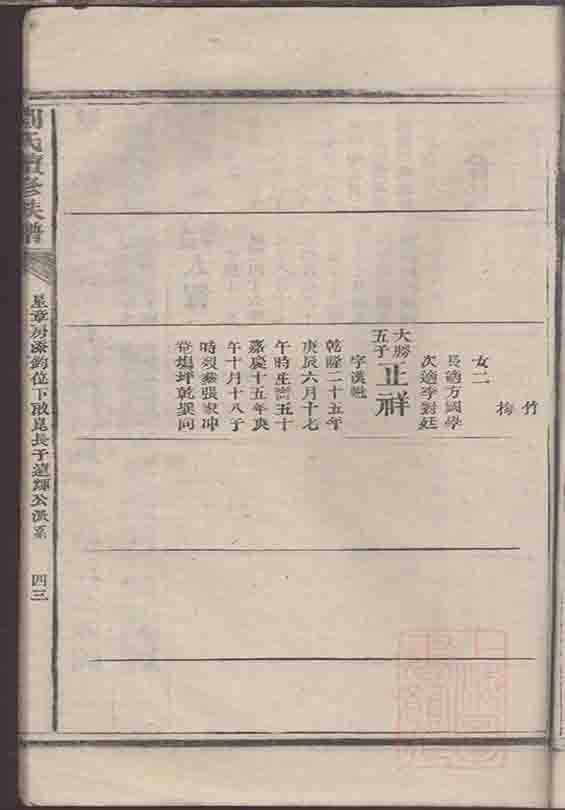 竹
梅
女二
長適方國學
次適李對廷
大勝
五子
正祥
字漢
乾隆二十五年
庚辰六月十七
午時生壽五十
嘉慶十五年庚
午十月十八子
時歿葬張家冲
坪乾巽向
劉氏續修族譜
星章房添鈞位下啟崑長子遠輝公派系
四三